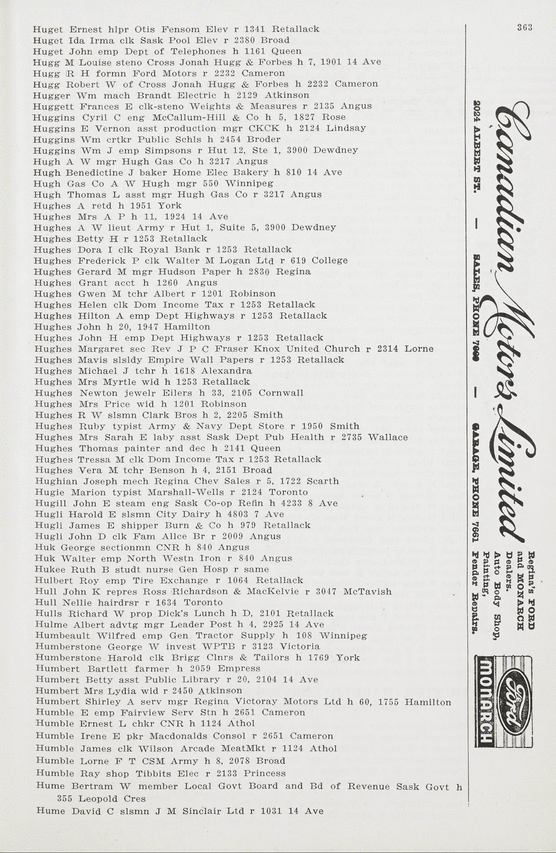 363
Huget Ernest hlpr Otis Fensom Elev r 1341 Retallack
Huget Ida Irma clk Sask Pool Elev r 2380 Broad
Huget John emp Dept of Telephones h 1161 Queen
Hugg M Louise steno Cross Jonah Hugg & Forbes h 7, 1901 14 Ave
Hugg R H formn Ford Motors r 2232 Cameron
Hugg Robert W of Cross Jonah Hugg & Forbes h 2232 Cameron
Hugger Wm mach Brandt Electric h 2129 Atkinson
Huggett Frances E clk-steno Weights & Measures r 2135 Angus
Huggins Cyril C eng McCallum-Hill & Co h 5, 1827 Rose
Huggins E Vernon asst production mgr CKCK h 2124 Lindsay
Huggins Wm crtkr Public Schls h 2454 Broder
Huggins Wm J emp Simpsons r Hut 12, Ste 1, 3900 Dewdney
Hugh A W mgr Hugh Gas Co h 3217 Angus
Hugh Benedictine J baker Home Elec Bakery h 810 14 Ave
Hugh Gas Co A W Hugh mgr 550 Winnipeg
Hugh Thomas L asst mgr Hugh Gas Co r 3217 Angus
Hughes A retd h 1951 York
Hughes Mrs A P h 11, 1924 14 Ave
Hughes A W lieut Army r Hut 1, Suite 5, 3900 Dewdney
Hughes Betty H r 1253 Retallack
Hughes Dora I clk Royal Bank r 1253 Retallack
Hughes Frederick P clk Walter M Logan Ltd r 619 College
Hughes Gerard M mgr Hudson Paper h 2830 Regina
Hughes Grant acct h 1260 Angus
Hughes Gwen M tchr Albert r 1201 Robinson
Hughes Helen clk Dom Income Tax r 1253 Retallack
Hughes Hilton A emp Dept Highways r 1253 Retallack
Hughes John h 20, 1947 Hamilton
Hughes John H emp Dept Highways r 1253 Retallack
Hughes Margaret sec Rev J P C Fraser Knox United Church r 2314 Lorne
Hughes Mavis slsldy Empire Wall Papers r 1253 Retallack
Hughes Michael J tchr h 1618 Alexandra
Hughes Mrs Myrtle wid h 1253 Retallack
Hughes Newton jewelr Eilers h 33, 2105 Cornwall
Hughes Mrs Price wid h 1201 Robinson
Hughes R W slsmn Clark Bros h 2, 2205 Smith
Hughes Ruby typist Army & Navy Dept Store r 1950 Smith
Hughes Mrs Sarah E laby asst Sask Dept Pub Health r 2735 Wallace
Hughes Thomas painter and dec h 2141 Queen
Hughes Tressa M clk Dom Income Tax r 1253 Retallack
Hughes Vera M tchr Benson h 4, 2151 Broad
Hughian Joseph mech Regina Chev Sales r 5, 1722 Scarth
Hugie Marion typist Marshall-Wells r 2124 Toronto
Hugill John E steam eng Sask Co-op Refin h 4233 8 Ave
Hugli Harold E slsmn City Dairy h 4803 7 Ave
Hugli James E shipper Burn & Co h 979 Retallack
Hugli John D clk Fam Allce Br r 2009 Angus
Huk George sectionmn CNR h 840 Angus
Huk Walter emp North Westn Iron r 840 Angus
Hukee Ruth B studt nurse Gen Hosp r same
Hulbert Roy emp Tire Exchange r 1064 Retallack
Hull John K repres Ross Richardson & MacKelvie r 3047 McTavish
Hull Nellie hairdrsr r 1634 Toronto
Hulls Richard W prop Dick's Lunch h D, 2101 Retallack
Hulme Albert advtg mgr Leader Post h 4, 2925 14 Ave
Humbeault Wilfred emp Gen Tractor Supply h 108 Winnipeg
Humberstone George W invest WPTB r 3123 Victoria
Humberstone Harold clk Brigg Clnrs & Tailors h 1769 York
Humbert Bartlett farmer h 2059 Empress
Humbert Betty asst Public Library r 20, 2104 14 Ave
Humbert Mrs Lydia wid r 2450 Atkinson
Humbert Shirley A serv mgr Regina Victoray Motors Ltd h 60, 1755 Hamilton
Humble E emp Fairview Serv Stn h 2651 Cameron
Humble Ernest L chkr CNR h 1124 Athol
Humble Irene E pkr Macdonalds Consol r 2651 Cameron
Humble James clk Wilson Arcade MeatMkt r 1124 Athol
Humble Lorne F T CSM Army h 8, 2078 Broad
Humble Ray shop Tibbits Elec r 2133 Princess
Hume Bertram W member Local Govt Board and Bd of Revenue Sask Govt h
355 Leopold Cres
Hume David C slsmn J M Sinclair Ltd r 1031 14 Ave
Canadian Motors Limited
2024 ALBERT ST. — SALES, PHONE — GARAGE, PHONE 7661
Regina's FORD
and MONARCH
Dealers.
Auto Body Shop,
Painting,
Fender Repairs.
Ford
MONARCH